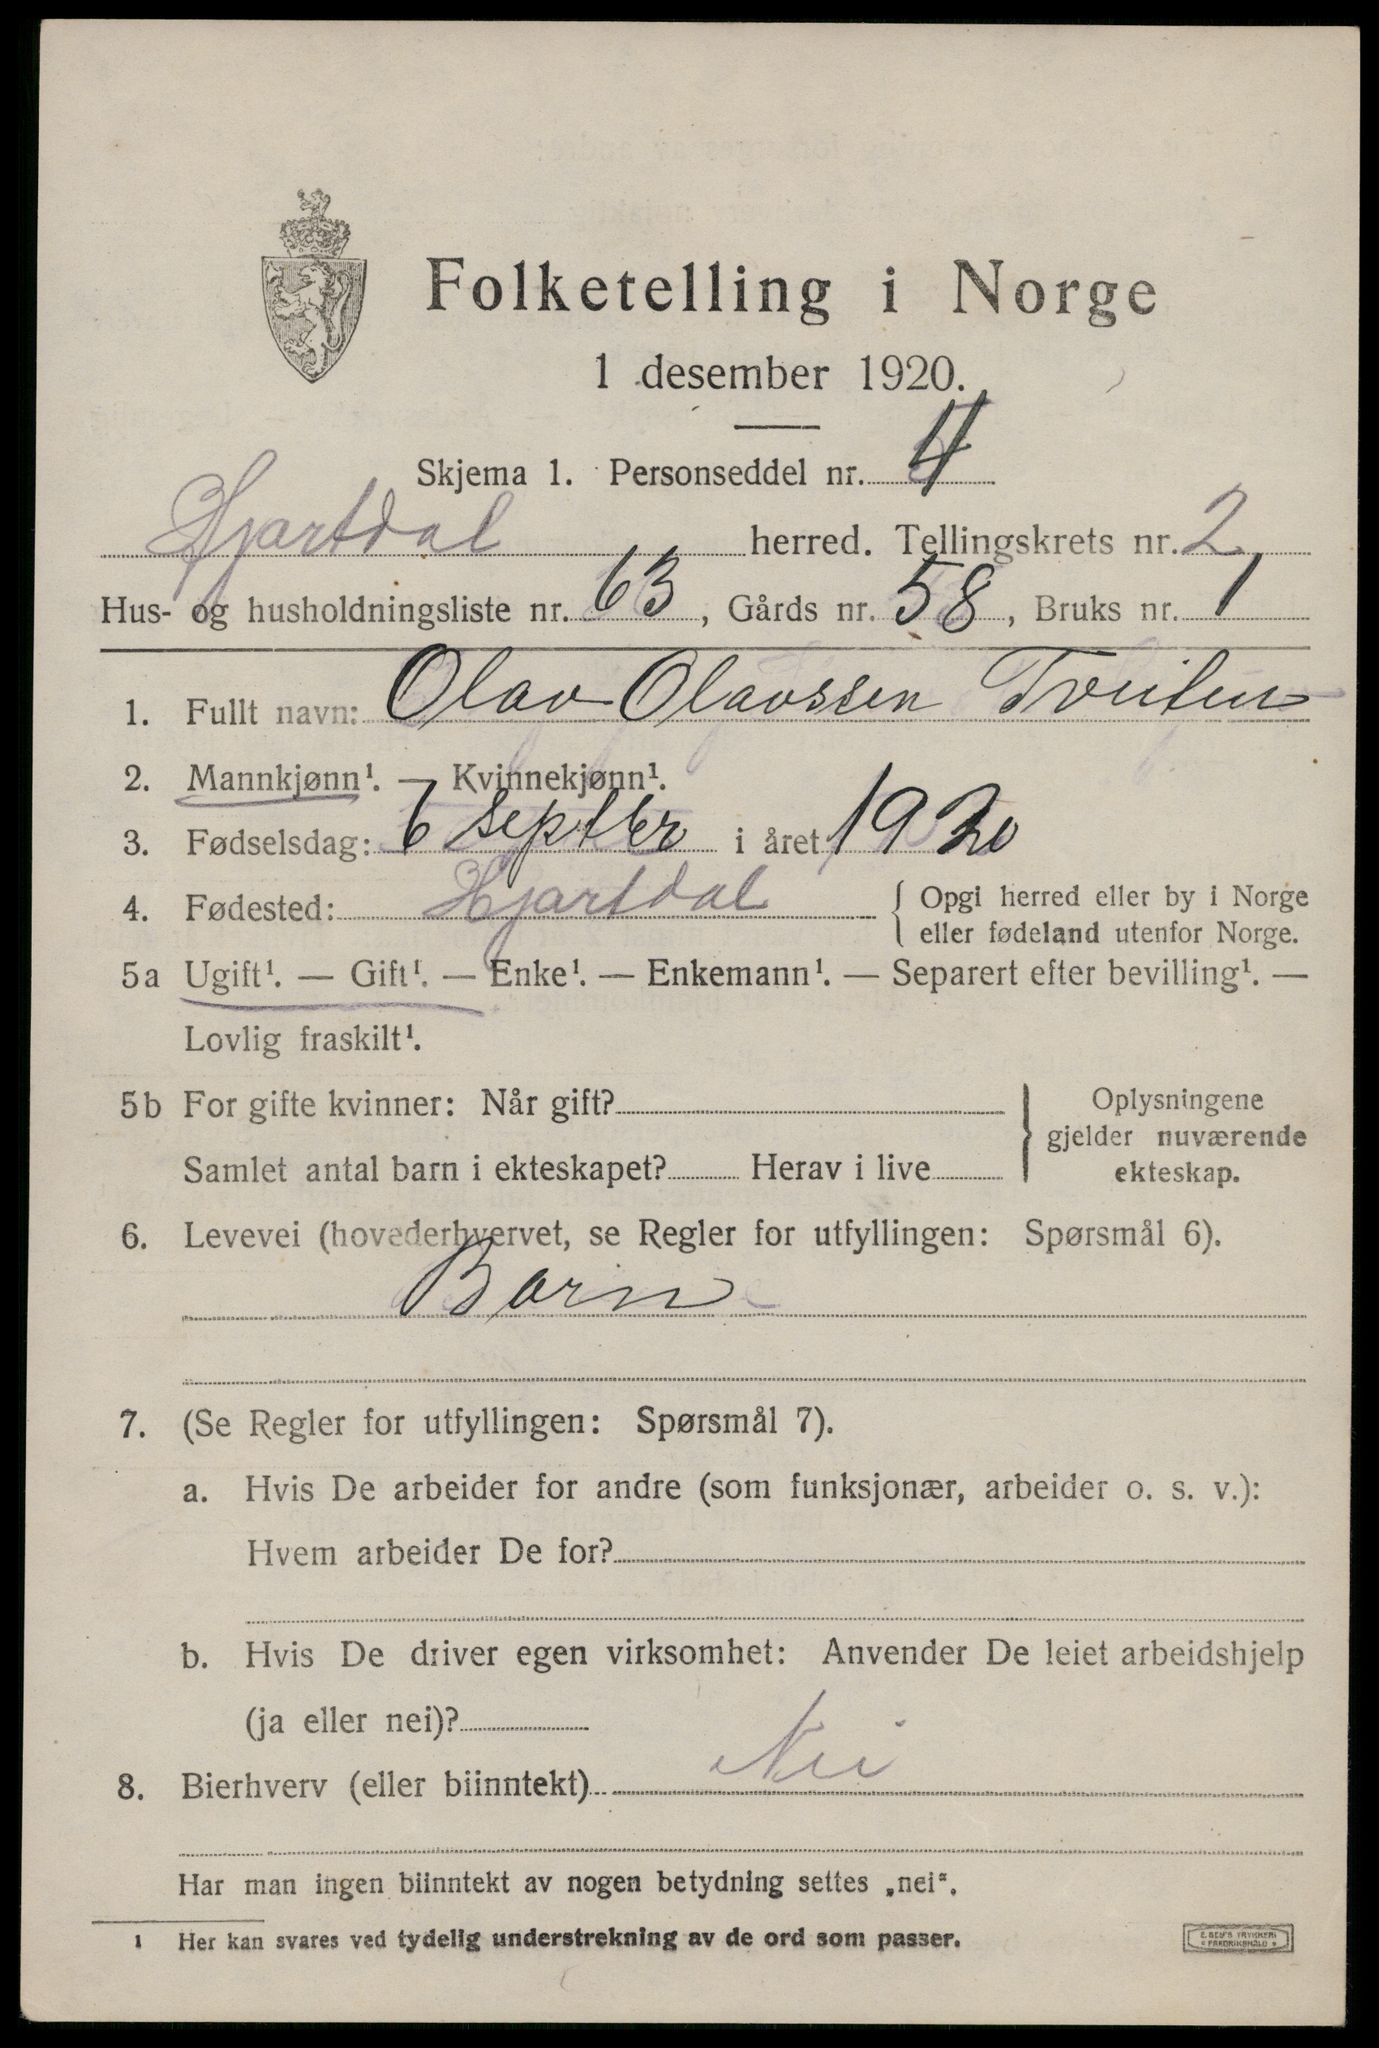 Folketelling i Norge
1 desember 1920.
Skjema 1. Personseddel nr. 4
Hjartdal herred. Tellingskrets nr. 2
Hus- og husholdningsliste nr. 63, Gårds nr. 58, Bruks nr. 1
1. Fullt navn: Olav Olavssen Tveiten
2. Mannkjønn¹. — Kvinnekjønn¹.
3. Fødselsdag: 6 septber i året 1920
4. Fødested: Hjartdal { Opgi herred eller by i Norge
eller fødeland utenfor Norge.
5a Ugift¹. — Gift¹. — Enke¹. — Enkemann¹. — Separert efter bevilling¹. —
Lovlig fraskilt¹.
5b For gifte kvinner: Når gift? } Oplysningene
gjelder nuværende
Samlet antal barn i ekteskapet? Herav i live ekteskap.
6. Levevei (hovederhvervet, se Regler for utfyllingen: Spørsmål 6).
Barn
7. (Se Regler for utfyllingen: Spørsmål 7).
a. Hvis De arbeider for andre (som funksjonær, arbeider o. s. v.):
Hvem arbeider De for?
b. Hvis De driver egen virksomhet: Anvender De leiet arbeidshjelp
(ja eller nei)?
8. Bierhverv (eller biinntekt) Nei
Har man ingen biinntekt av nogen betydning settes „nei".
¹ Her kan svares ved tydelig understrekning av de ord som passer.
E. SEM'S TRYKKERI
FREDRIKSHALD